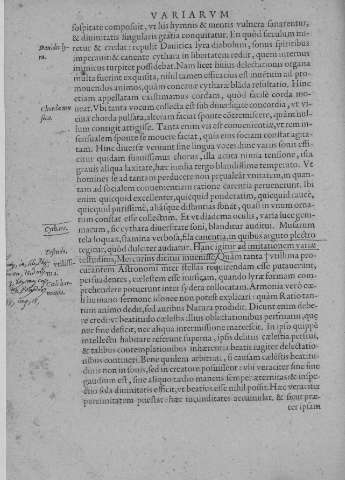 VARIARVM
sospitate composuit, vt suis hymnis & mentis vulnera sanarentur,
& diuinitatis singularis gratia conquiratur. En quod seculum mi-
Dauidis ly-
ra.
retur & credat: repulit Dauitica lyra diabolum, sonus spiritibus
imperauit: & canente cythara in libertatem rediit, quem internus
inimicus turpiter possidebat. Nam licet huius delectationis organa
multa fuerint exquisita, nihil tamen efficacius est inuentum ad pro-
mouendos animos, quàm concauæ cytharæ blada resultatio. Hinc
etiam appellatam æstimamus cordam, quòd facilè corda mo-
ueat. Vbi tanta vocum collecta est sub diuersitate concordia, vt vi-
cina chorda pulsata, altera faciat sponte cōtremiscere, quàm nul-
lum contigit attigisse. Tanta enim vis est conuenientiæ, vt rem in-
sensualem sponte se mouere faciat, quia eius sociam constat agita-
tam. Hinc diuersæ veniunt sine lingua voces: hinc varijs sonis effi-
citur quidam suauissimus chorus, illa acuta nimia tensione, ista
grauis aliqua laxitate, hæc media tergo blandissimo temperato. Ve
homines se ad tantam perducere non præualeāt vnitatem, in quan-
tam ad socialem conuenientiam ratione carentia peruenerunt. Ibi
enim quicquid excellenter, quicquid ponderatim, quicquid raucè,
quicquid purissimè, aliasque distantias sonāt, quasi in vnum orna-
tum constat esse collectum. Et vt diadema oculis, varia luce gem-
marum, sic cythara diuersitate soni, blanditur auditui.
Cythara.
tela loquax, stamina verbosa, fila canentia, in quibus arguto plectro
legitur, quod dulciter audiatur. Hanc igitur ad imitationem variæ
testudinis, Mercurius dicitur inuenisse. Quàm tanta vtilitate pro-
curantem Astronomi inter stellas requirendam esse putauerunt,
persuadentes, cælestem esse musicam, quando lyræ formam com-
prehendere potuerunt inter sydera collocatam. Armonia verò cæ-
li humano sermone idonee non potest explicari: quàm Ratio tan-
tum animo dedit, sed auribus Natura prodidit. Dicunt enim debe-
re credi: vt beatitudo cælestis illius oblectationibus perfruatur, quæ
nec fine deficit, nec aliqua intermissione marcescit. In ipso quippè
intellectu habitare referunt superna, ipsis delitijs cælestia perfrui,
& talibus contemplationibus inhærentia beatis iugiter delectatio-
nibus contineri. Bene quidem arbitrati, si causam cælestis beatitu-
dinis non in sonis, sed in creatore posuissent: vbi veraciter sine fine
gaudium est, sine aliquo tædio manens semper æternitas: & inspe-
ctio sola diuinitatis efficit, vt beatius esse nihil possit. Hæc veraciter
perennitatem præstat: hæc iucunditates accumulat, & sicut præ-
ter ipsam